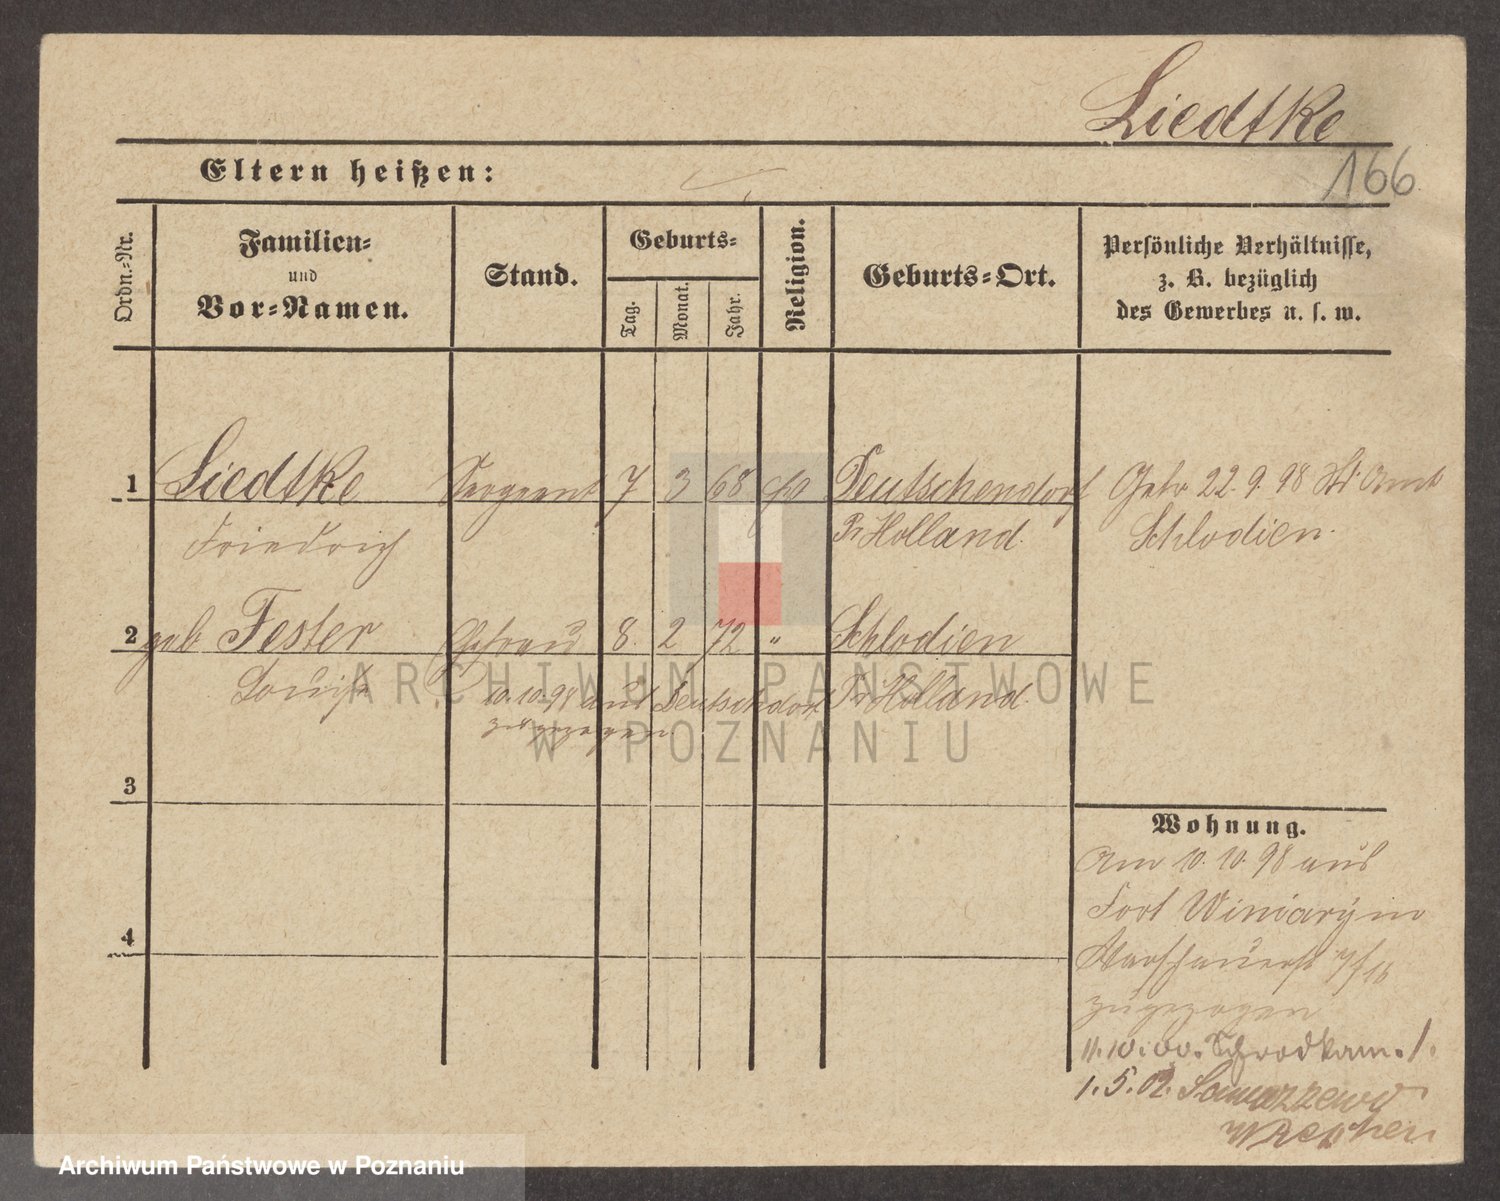 Liedtke
166
Eltern heißen:
Ordn.-Nr.
Familien-
und
Vor-Namen.
Stand.
Geburts-
Tag.
Monat.
Jahr.
Religion.
Geburts-Ort.
Persönliche Verhältnisse,
z. B. bezüglich
des Gewerbes u. s. w.
1 Liedtke Sergeant 7 3 68 Deutschendorf 22. 9. 98 St Amt
Friedrich Pr Holland Schlodien.
2 geb Fester Ehefrau 8. 2 72 " Schlodien
Louise 10.10.98 aus Deutschdorf Pr Holland
zugezogen
3
4
Wohnung.
Am 10. 10. 98 aus
Fort Winiary in
zugezogen
11.10.00. Schrodkam. 1.
1. 5. 02.
Wreschen
ARCHIWUM PAŃSTWOWE
W POZNANIU
Archiwum Państwowe w Poznaniu